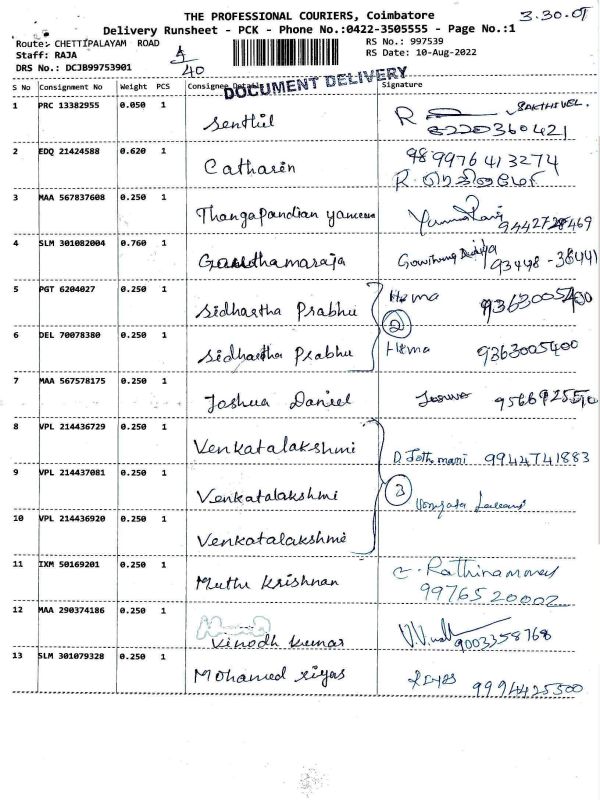 THE PROFESSIONAL COURIERS, Coimbatore
Delivery Runsheet - PCK - Phone No.:0422-3505555 - Page No.:1
Route: CHETTIPALAYAM ROAD RS No.: 997539
Staff: RAJA RS Date: 10-Aug-2022
DRS No.: DCJB99753901
40
S No Consignment No Weight PCS Consignee Details Signature
DOCUMENT DELIVERY
1 PRC 13382955 0.050 1 Senthil R SAKTHIVEL
8220360421
2 EDQ 21424588 0.620 1 Catharin
3 MAA 567837608 0.250 1 Thangapandian
4 SLM 301082004 0.760 1
5 PGT 6204027 0.250 1 Sidhartha Prabhu Hema 9363005400
2
6 DEL 70078380 0.250 1 Sidhartha Prabhu Hema 9363005400
7 MAA 567578175 0.250 1 Joshua Daniel
8 VPL 214436729 0.250 1 Venkatalakshmi 9944741883
9 VPL 214437081 0.250 1 Venkatalakshmi
3
10 VPL 214436920 0.250 1 Venkatalakshmi
11 IXM 50169201 0.250 1 Muthu Krishnan
9976520002
12 MAA 290374186 0.250 1 Vinodh Kumar 9003358768
13 SLM 301079328 0.250 1 Mohamed Riyas 9994425500